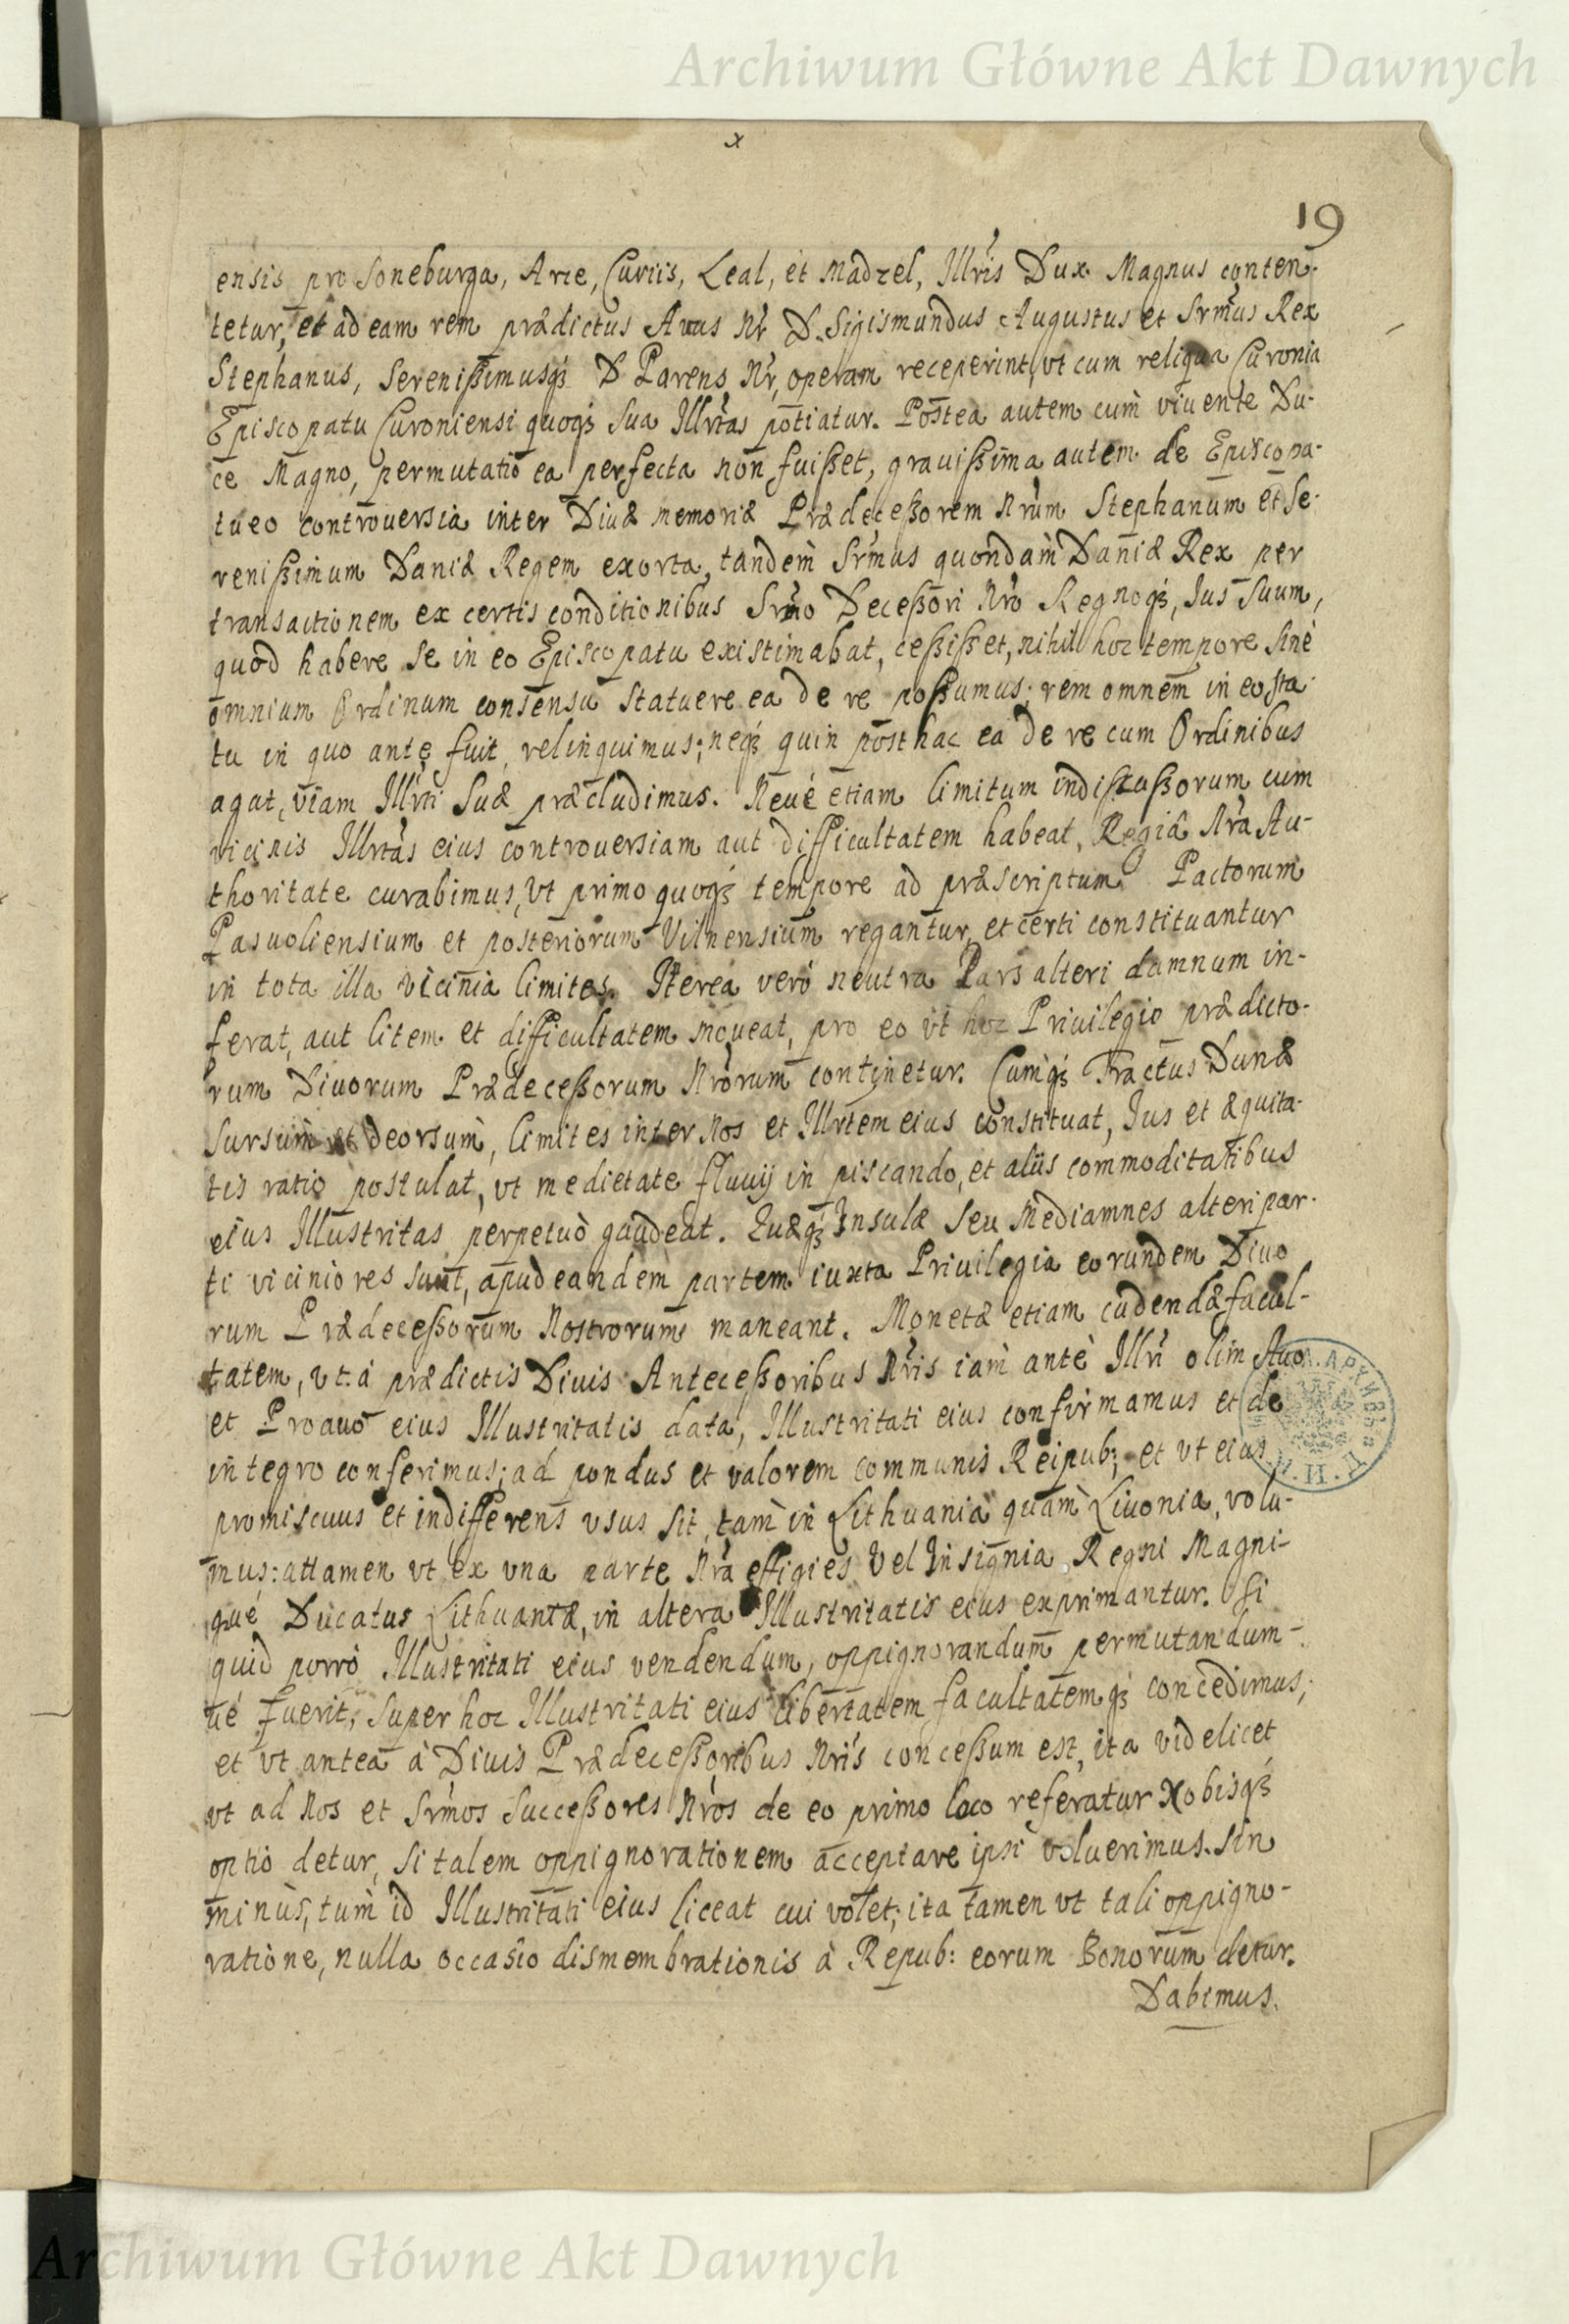 Archiwum Główne Akt Dawnych
x
19
ensis pro Soneburga, Arce, Curiis, Leal, et Madzel, Illris Dux Magnus conten-
tetur, et ad eam rem prædictus Auus Nr D. Sigismundus Augustus et Srmus Rex
Stephanus, Serenißimusqȝ D Parens Nr, operam receperint, vt cum reliqua Curonia
Episcopatu Curoniensi quoqȝ Sua Illrtas potiatur. Postea autem cum viuente Du-
ce Magno, permutatio ea perfecta non fuißet, grauißima autem de Episcopa-
tu eo controuersia inter Diuæ memoriæ Prædeceßorem Nrum Stephanum et Se-
renißimum Daniæ Regem exorta, tandem Srmus quondam Daniæ Rex per
transactionem ex certis conditionibus Srmo Deceßori Nro Regnoqȝ, Ius suum,
quod habere se in eo Episcopatu existimabat, ceßißet, nihil hoc tempore sine
omnium Ordinum consensu statuere ea de re poßumus; rem omnem in eo sta-
tu in quo ante fuit, relinquimus; neqȝ quin posthac ea de re cum Ordinibus
agat, viam Illrti Suæ præcludimus. Neué etiam limitum indiscußorum cum
vicinis Illrtas eius controuersiam aut difficultatem habeat, Regiâ Nra Au-
thoritate curabimus, vt primo quoqȝ tempore ad præscriptum Pactorum
Pasuoliensium et posteriorum Vilnensium regantur, et certi constituantur
in tota illa vicinia limites. Iterea verò neutra Pars alteri damnum in-
ferat, aut litem et difficultatem moueat, pro eo vt hoc Priuilegio prædicto-
rum Diuorum Prædeceßorum Nrorum continetur. Cumqȝ Tractus Dunæ
sursum et deorsum, limites inter Nos et Illrtem eius constituat, Ius et æquita-
tis ratio postulat, vt medietate fluuij in piscando, et aliis commoditatibus
eius Illustritas perpetuò gaudeat. Quæqȝ Insulæ seu Mediamnes alteri par-
ti viciniores sunt, apud eandem partem iuxta Priuilegia eorundem Diuo
rum Prædeceßorum Nostrorum maneant. Monetæ etiam cudendæ facul-
tatem, vt à prædictis Diuis Anteceßoribus Nris iam antè Illri olim Auo
et Proauo eius Illustritatis data, Illustritati eius confirmamus et de
integro conferimus; ad pondus et valorem communis Reipub; et vt eius
promiscuus et indifferens vsus sit, tam in Lithuania quàm Liuonia, volu-
mus: attamen vt ex vna parte Nra effigies vel Insignia Regni Magni-
qué Ducatus Lithuaniæ, in altera Illustritatis eius exprimantur. Si
quid porrò Illustritati eius vendendum, oppignorandum permutandum-
ué fuerit, super hoc Illustritati eius libertatem facultatemqȝ concedimus,
et vt antea à Diuis Prædeceßoribus Nris conceßum est, ita videlicet
vt ad Nos et Srmos Succeßores Nros de eo primo loco referatur Nobisqȝ
optio detur, si talem oppignorationem acceptare ipsi voluerimus. sin
minùs, tùm id Illustritati eius liceat cui volet; ita tamen vt tali oppigno-
ratione, nulla occasio dismembrationis à Repub: eorum Bonorum detur.
Dabimus.
Archiwum Główne Akt Dawnych